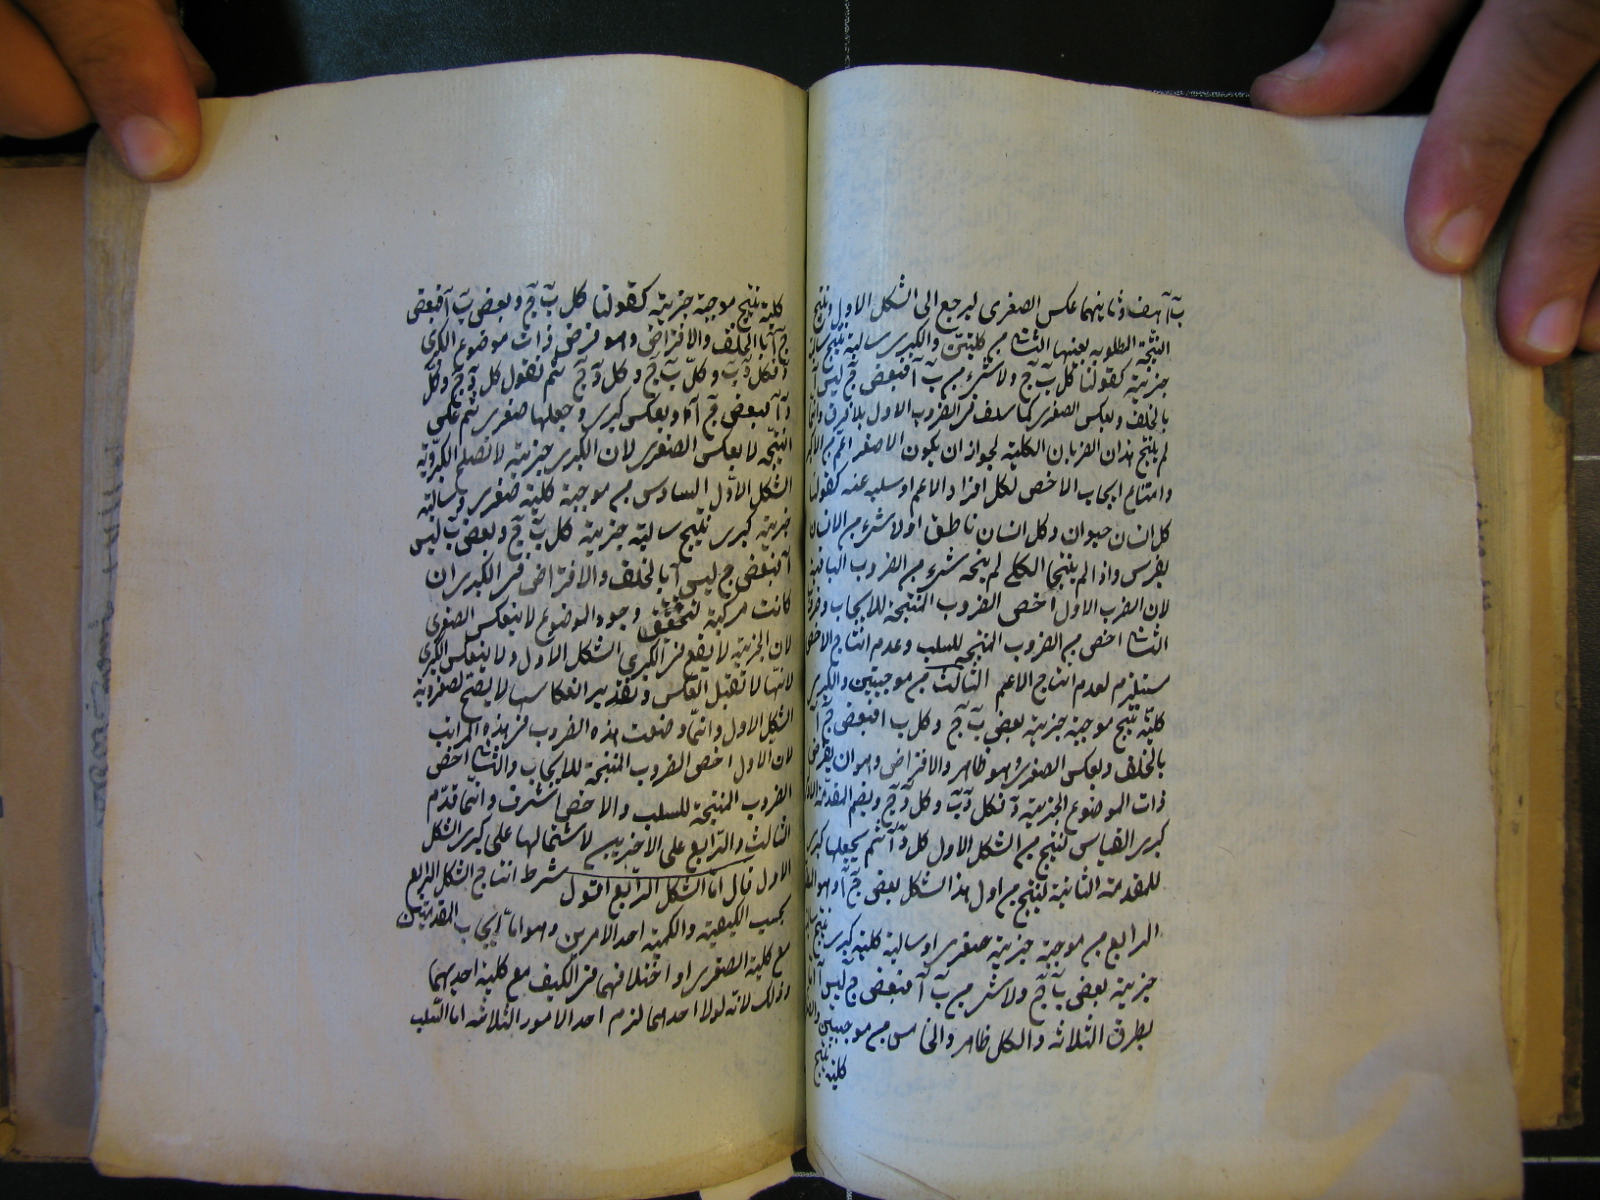 بَ آ هف وثانيهما عكس الصغرى ليرجع الى الشكل الاول وينتج
النتيجة المطلوبة بعينها الثانى من كليتين والكبرى سالبة ينتج سالبة
جزئية كقولنا كل بَ جَ ولا شىء من بَ آ فبعض جَ ليس آ
بالخلف وبعكس الصغرى كما سلف فى الضرب الاول بلا فرق وانما
لم ينتج هذان الضربان الكلية لجواز ان يكون الاصغر اعم من الاكبر
وامتناع ايجاب الاخص لكل افراد الاعم او سلبه عنه كقولنا
كل انسان حيوان وكل انسان ناطق او لا شىء من الانسان
بفرس واذا لم ينتجا الكلى لم ينتجه شىء من الضروب الباقية
لان الضرب الاول اخص الضروب المنتجة للايجاب والضرب
الثانى اخص من الضروب المنتجة للسلب وعدم انتاج الاخص
مستلزم لعدم انتاج الاعم الثالث من موجبتين والكبرى
كلية ينتج موجبة جزئية بعض بَ جَ وكل ب ا فبعض جَ آ
بالخلف وبعكس الصغرى وهو ظاهر والافتراض وهو ان يفرض
ذات الموضوع الجزئية دَ فكل دَ بَ وكل دَ جَ ويضم المقدمة الاولى
كبرى القياس لينتج من الشكل الاول كل دَ آ ثم يجعلها كبرى
للمقدمة الثانية لينتج من اول هذا الشكل بعض جَ آ وهو
الرابع من موجبة جزئية صغرى وسالبة كلية كبرى ينتج سالبة
جزئية بعض بَ جَ ولا شىء من بَ آ فبعض جَ ليس آ
بطرق الثلاثة والكل ظاهر والخامس من موجبتين والصغرى
كلية ينتج
كلية ينتج موجبة جزئية كقولنا كل بَ جَ وبعض بَ آ فبعض
جَ آ بالخلف والافتراض وهو فرض ذات موضوع الكبرى
دَ فكل دَ بَ وكل بَ جَ وكل دَ جَ ثم نقول كل دَ جَ وكل
دَ آ فبعض جَ آ وبعكس كبرى وجعلها صغرى ثم عكس
النتيجة لا بعكس الصغرى لان الكبرى جزئية لا تصلح لكبروية
الشكل الاول السادس من موجبة كلية صغرى وسالبة
جزئية كبرى ينتج سالبة جزئية كل بَ جَ وبعض بَ ليس
آ فبعض ج ليس آ بالخلف والافتراض فى الكبرى ان
كانت مركبة لتحقق وجود الموضوع لا بعكس الصغرى
لان الجزئية لا يقع فى كبرى الشكل الاول ولا بعكس الكبرى
لانها لا تقبل العكس وبتقدير انعكاسها لا يصلح لصغروية
الشكل الاول وانما وضعت هذه الضروب فى هذه المراتب
لان الاول اخص الضروب المنتجة للايجاب والثانى اخص
الضروب المنتجة للسلب والاخص اشرف وانما قدم
الثالث والرابع على الاخيرين لاشتمالهما على كبرى الشكل
الاول قال اما الشكل الرابع اقول شرط انتاج الشكل الرابع
بحسب الكيفية والكمية احد الامرين وهو اما ايجاب المقدمتين
مع كلية الصغرى او اختلافهما فى الكيف مع كلية احديهما
وذلك لانه لولا احدهما لزم احد الامور الثلاثة اما السلب